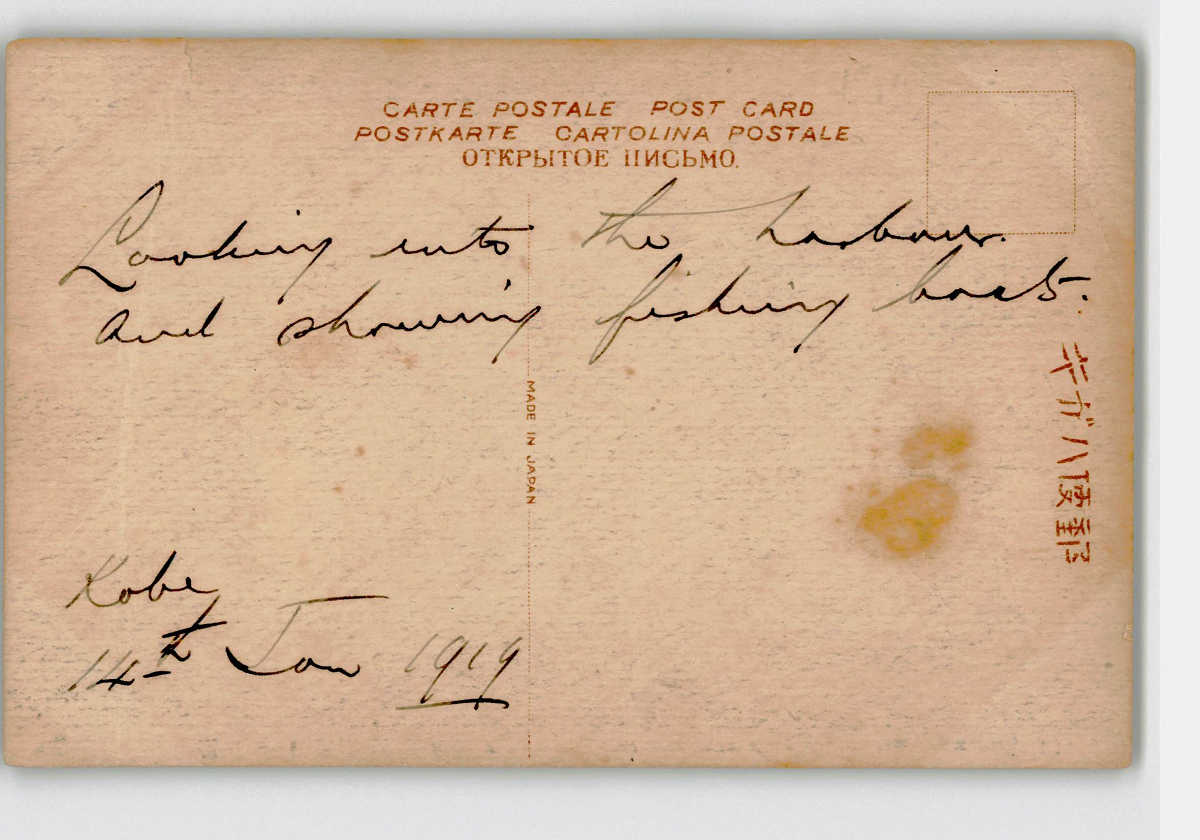 CARTE POSTALE POST CARD
POSTKARTE CARTOLINA POSTALE
ОТКРЫТОЕ ПИСЬМО.
Looking into the harbour.
and showing fishing boats.
MADE IN JAPAN
キガハ便郵
Kobe
14th Jan 1919